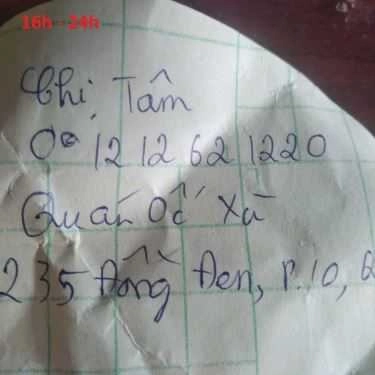 16h - 24h
Chị Tâm
0 12 12 62 1220
Quán Ốc Xù
235 Đồng Đen, P.10,